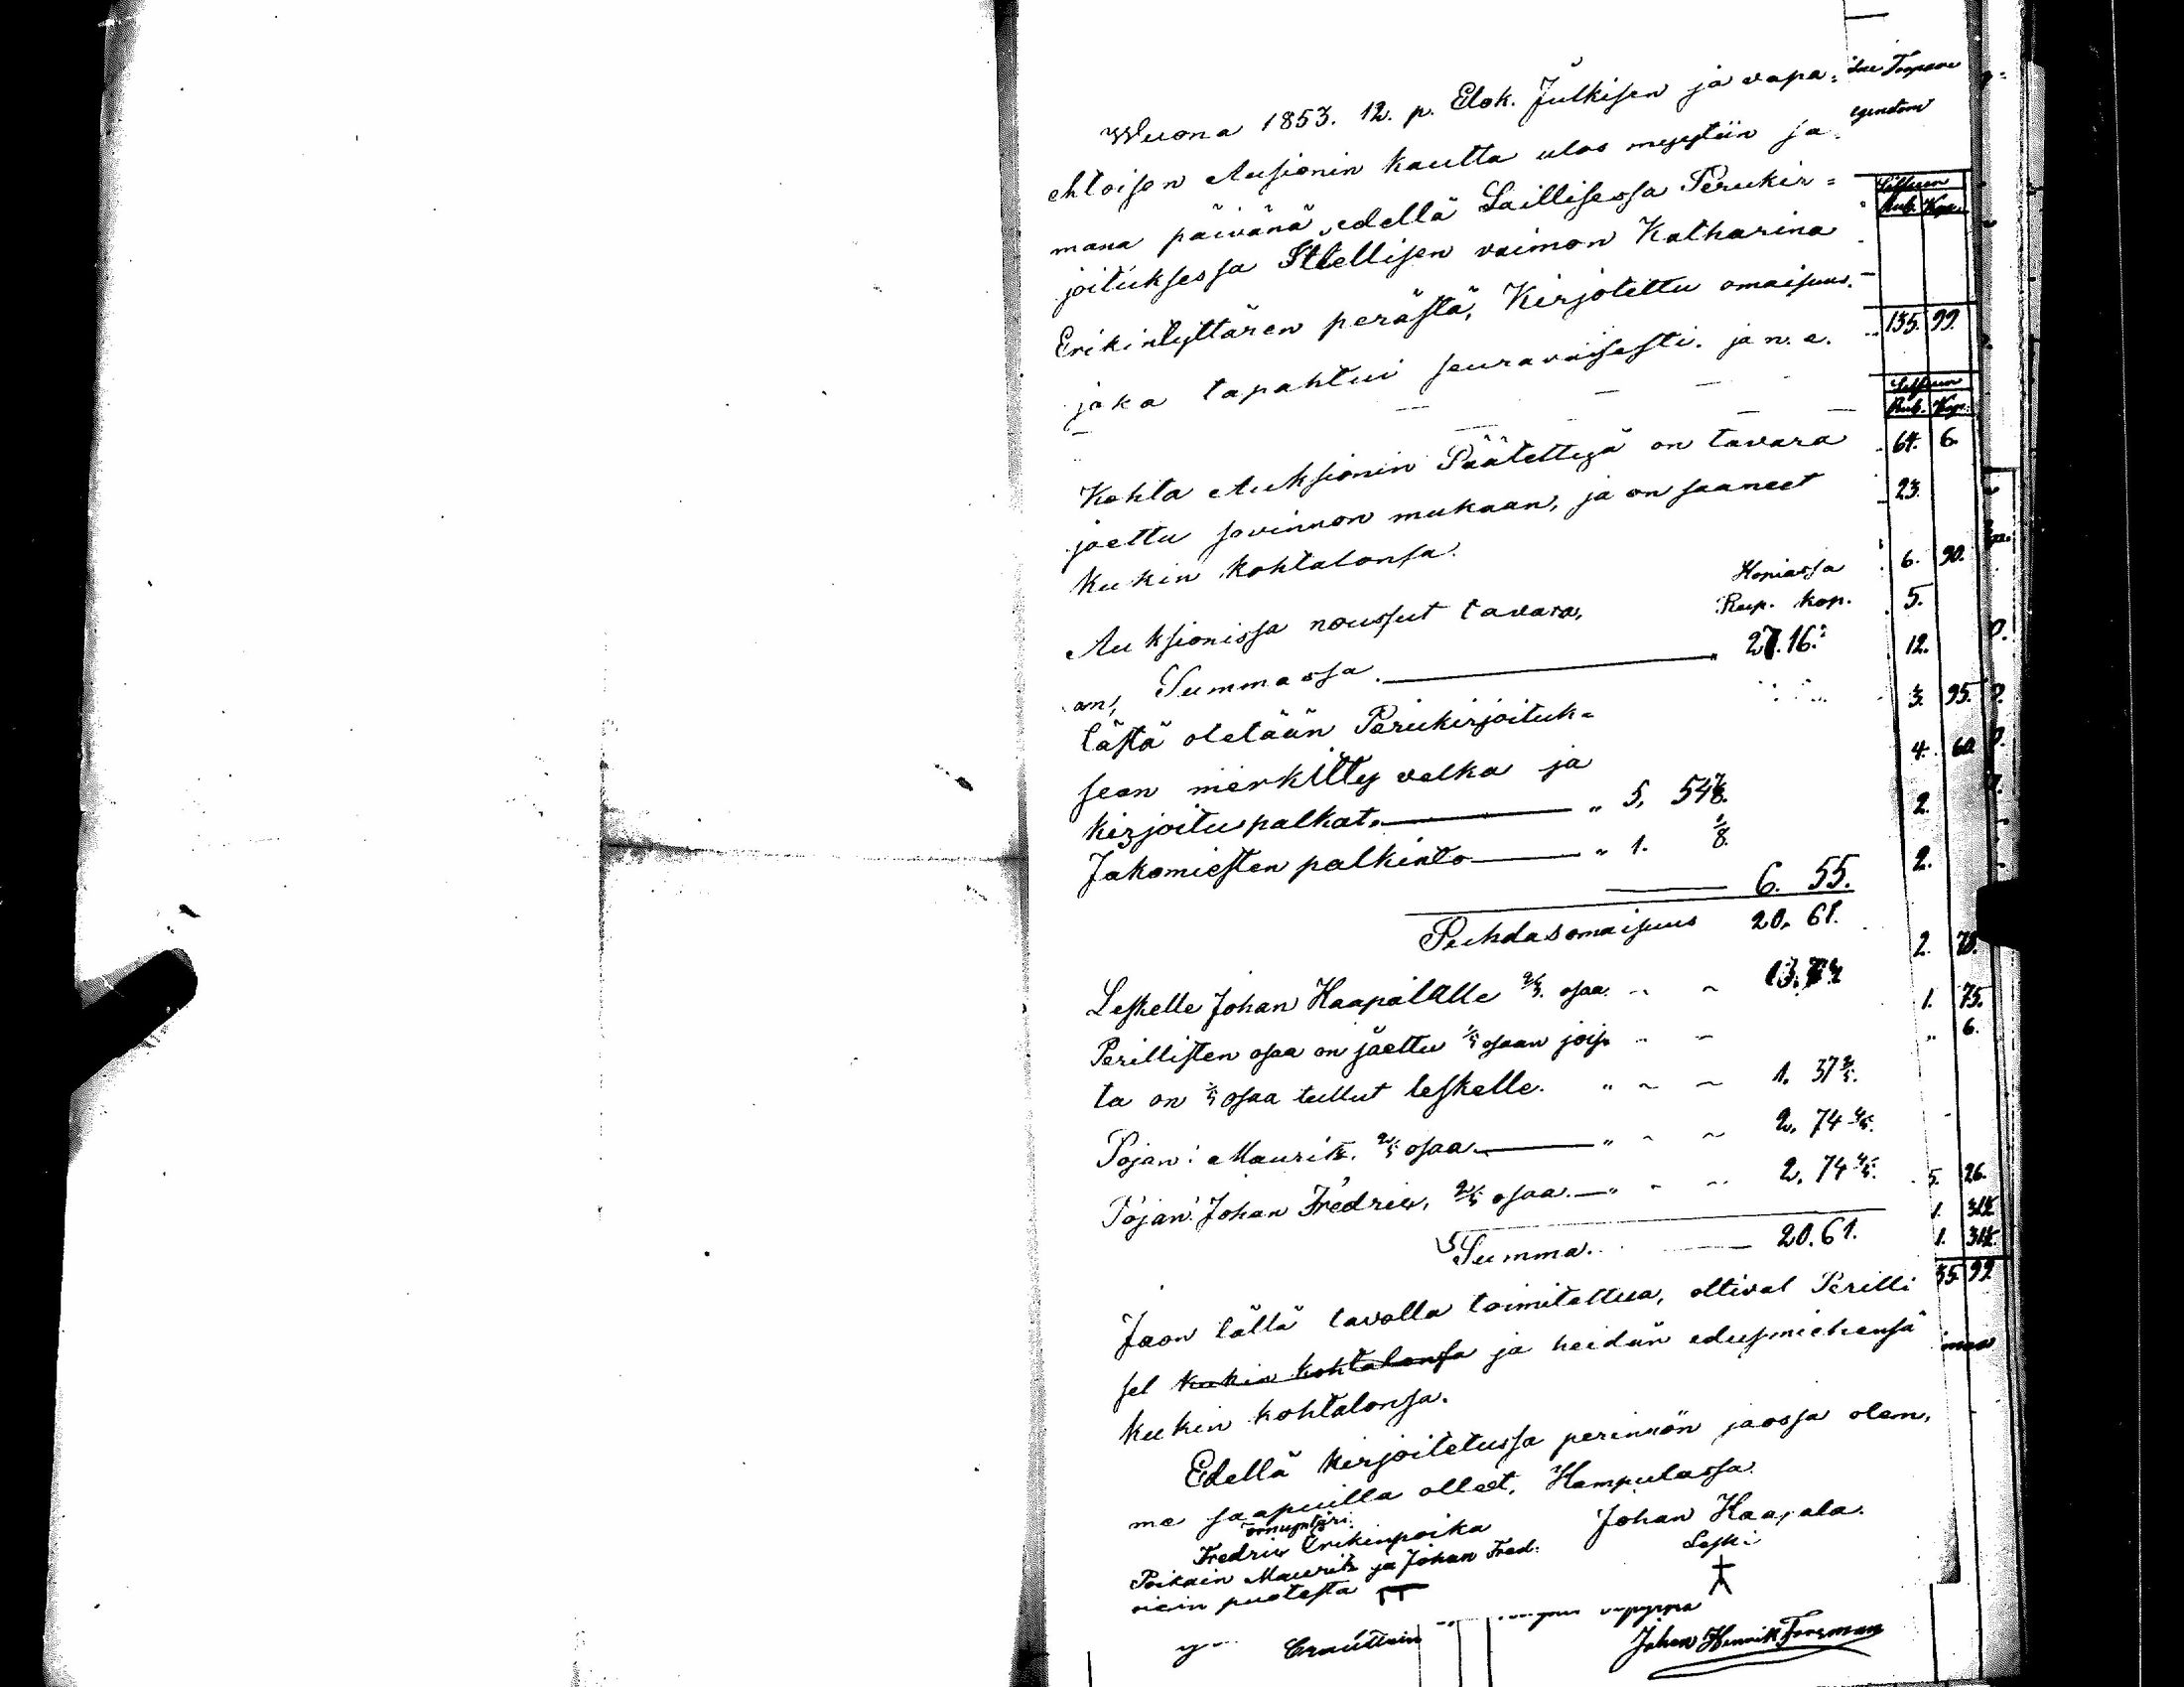 Wuona 1853. 12. p. Elok. Julkisen ja vapa=
ehtoisen Ausionin kautta ulos myystiin sa
mana päivänä, edellä Laillisessa Perukir=
joituksessa Itsellisen vaimon Katharina
Erikintyttären perästä, Kirjotettu omaisuus.
joka tapahtui seuravaisesti. ja n. e.
Kohta Auksionin Päätettyä on tavara
jaettu sovinnon mukaan, ja on saaneet
kukin kohtalonsa.
Hopiassa
Auksionissa noussut tavara, Rup. kop.
on, Summassa. 27. 16.
tästä otetään Perukirjoituk=
seen merkitty velka ja
kirjoitus palkat. " 5, 54 7/8.
Jakomiesten palkinto " 1. 1/8.
6. 55.
Puhdas omaisuus 20. 61.
Leskelle Johan Haapalalle 2/3. osaa.
Perillisten osaa on jaettu 1/5 osaan jois
ta on 1/5 osaa tullut leskelle. " 1. 37 2/5.
Pojan: Mauritz. 2/5 osaa " 2. 74 4/5.
Pojan: Johan Fredric, 2/5 osaa. " 2. 74 4/5.
Summa. 20. 61.
Jaon tällä tavalla toimitettua, ottivat Perilli
set kukin kohtalonsa ja heidän edusmiehensä
kukin kohtalonsa.
Edellä kirjoitetussa perinnön jaossa olem,
me saapuilla olleet, Hampulassa.
Fredric Erikinpoika Johan Haapala.
Poikain Mauritz ja Johan Fred: Leski
ricin puolesta
Johan Henrik Forsman
135. 99.
64. 6.
23.
6. 90.
5.
12.
3. 95.
4. 60
2.
2.
2. 70.
1. 75.
" 6.
5. 26.